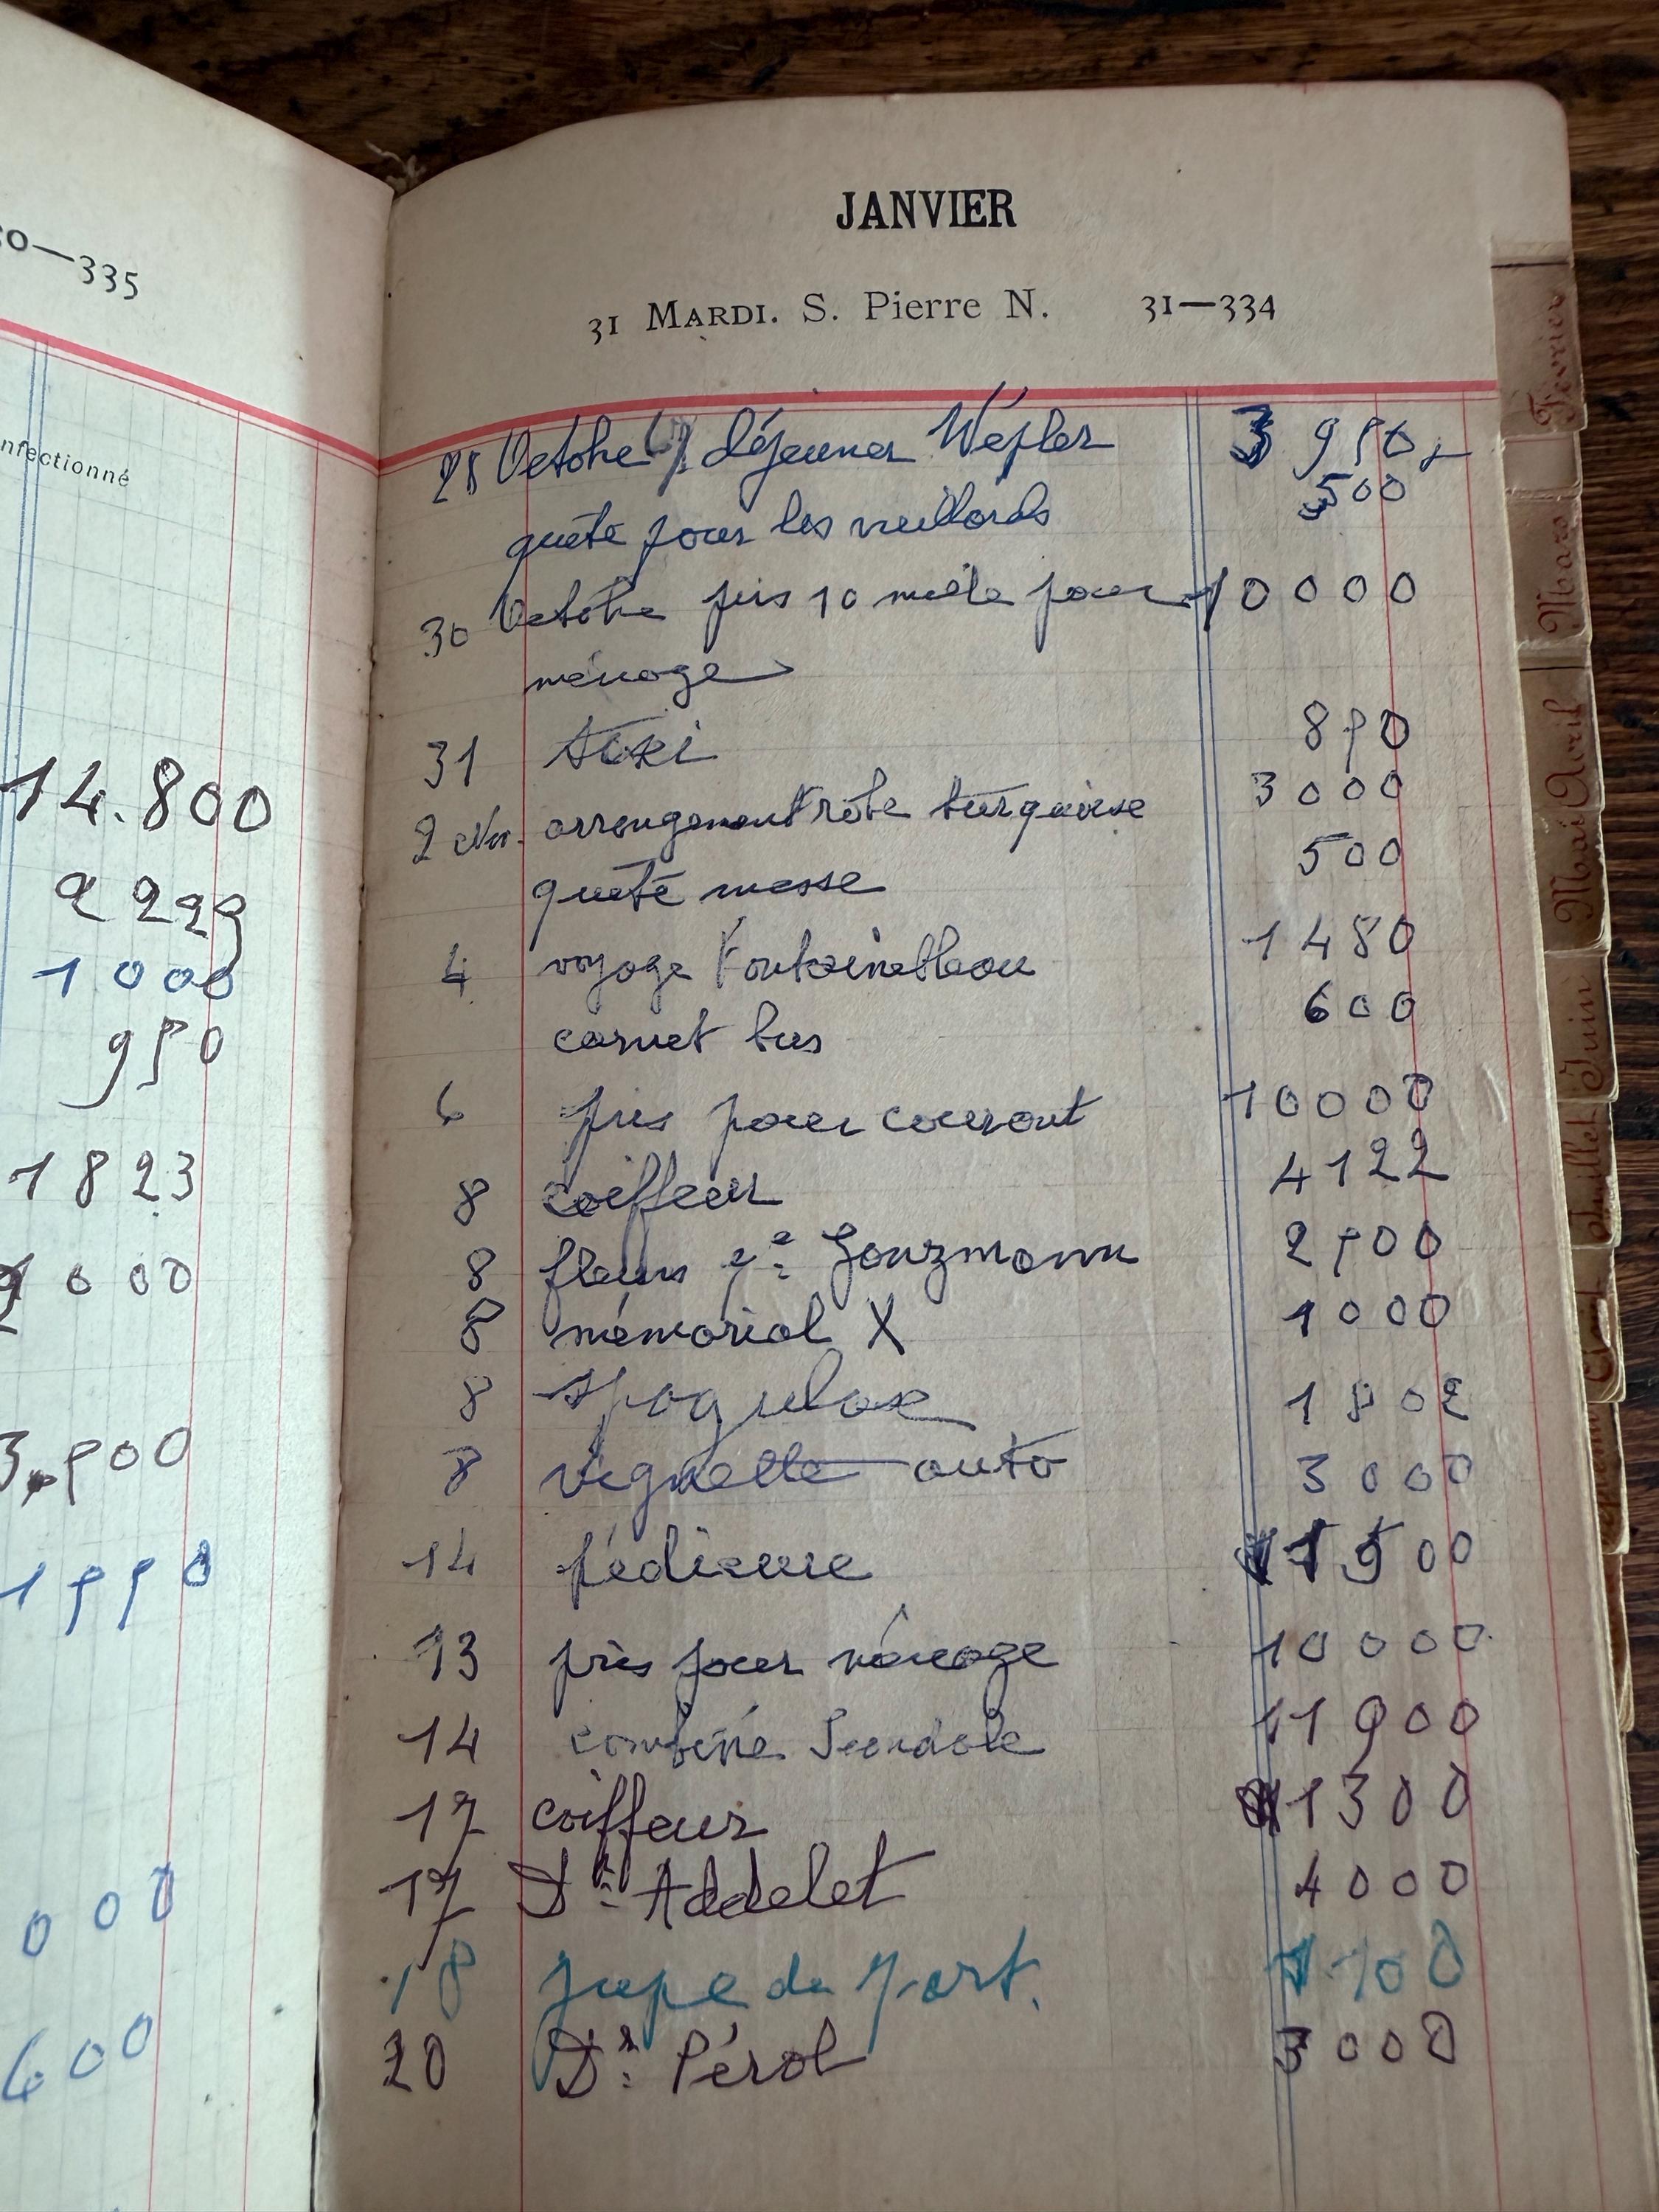 50—335
nfectionné
14.800
2 299
1 000
950
1 823
000
3.500
1550
000
600
JANVIER
31 MARDI. S. Pierre N. 31—334
28 Octobre déjeuner Wepler 3 950
quête pour les vieillards 500
30 Octobre pris 10 mille pour 10 000
ménage
31 taxi 850
2 Nov. arrangement robe turquoise 3000
quête messe 500
4 voyage Fontainebleau 1480
carnet bus 600
6 pris pour courant 10000
8 coiffeur 4122
8 fleurs 2500
8 mémorial X 1000
8 1802
8 vignette auto 3000
14 pédicure 1500
13 pris pour ménage 10000
14 combiné Scandale 11900
17 coiffeur 1300
17 Dr Addelet 4000
18 jupe de
20 Dr Pérol 3000
Février
Mars
Avril
Mai
Juin
Juillet